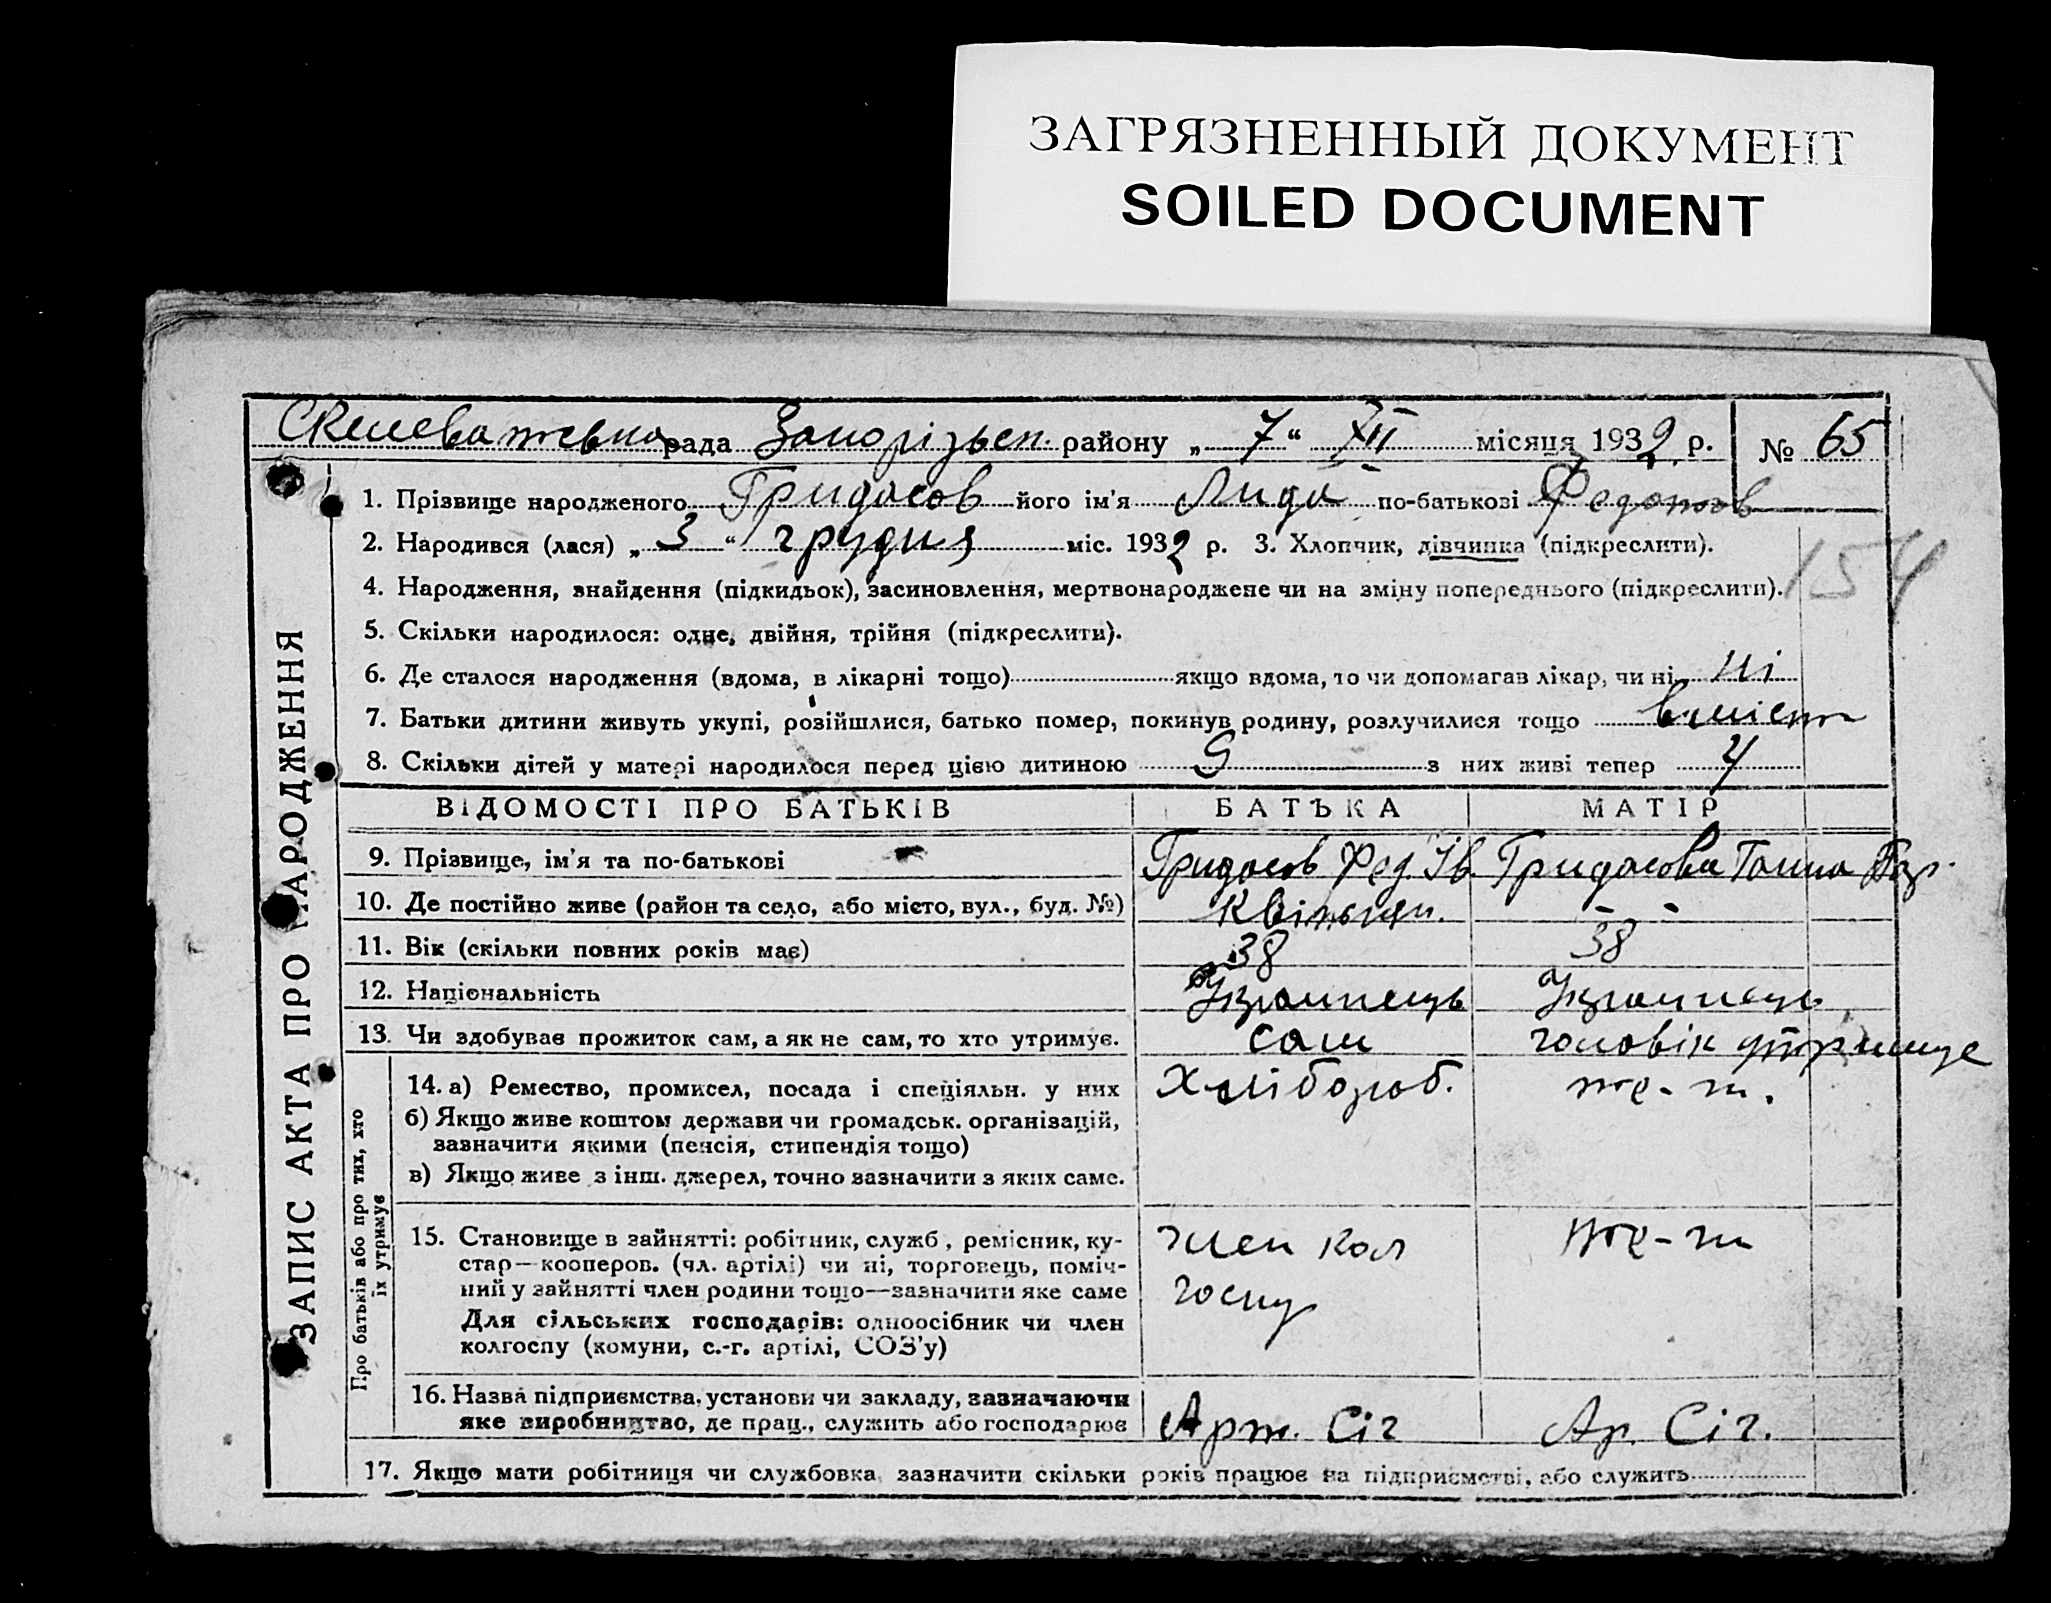 ЗАГРЯЗНЕННЫЙ ДОКУМЕНТ
SOILED DOCUMENT
рада Запорізьк. району „ 7 “ XII місяця 1932 р. № 65
1. Прізвище народженого Гридасов його ім'я Лида по-батькові Федотов
2. Народився (лася) „ 3 “ грудня міс. 1932 р. 3. Хлопчик, дівчинка (підкреслити).
154
4. Народження, знайдення (підкидьок), засиновлення, мертвонароджене чи на зміну попереднього (підкреслити).
5. Скільки народилося: одне, двійня, трійня (підкреслити).
6. Де сталося народження (вдома, в лікарні тощо) якщо вдома, то чи допомагав лікар, чи ні ні
7. Батьки дитини живуть укупі, розійшлися, батько помер, покинув родину, розлучилися тощо вмісті
8. Скільки дітей у матері народилося перед цією дитиною 5 з них живі тепер 4
ВІДОМОСТІ ПРО БАТЬКІВ БАТЬКА МАТІР
9. Прізвище, ім'я та по-батькові Гридасов Фед Ів. Гридасова Ганна
10. Де постійно живе (район та село, або місто, вул., буд. №) - -
11. Вік (скільки повних років має) 38 38
12. Національність Українець Українець
13. Чи здобував прожиток сам, а як не сам, то хто утримує. сам чоловік утримує
14. а) Ремество, промисел, посада і спеціяльн. у них Хлібороб. те-ж.
б) Якщо живе коштом держави чи громадськ. організацій,
зазначити якими (пенсія, стипендія тощо)
в) Якщо живе з інш. джерел, точно зазначити з яких саме.
15. Становище в зайнятті: робітник, служб., ремісник, ку- член кол те-ж
стар—кооперов. (чл. артілі) чи ні, торговець, поміч-
ний у зайнятті член родини тощо—зазначити яке саме госпу
Для сільських господарів: одноосібник чи член
колгоспу (комуни, с.-г. артілі, СОЗ'у)
16. Назва підприємства, установи чи закладу, зазначаючи
яке виробництво, де прац., служить або господарює Арт. Січ Ар. Січ.
17. Якщо мати робітниця чи службовка зазначити скільки років працює на підприємстві, або служить
ЗАПИС АКТА ПРО НАРОДЖЕННЯ
Про батьків або про тих, хто
їх утримує